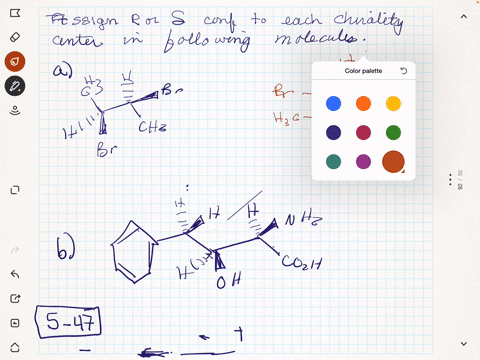 Assign R or S conf to each chirality
center in following molecules.
a)
H3C
H
Br
H
CH3
Br
Color palette
Br
H3C
b)
H
H
H
NH2
H
OH
CO2H
5-47